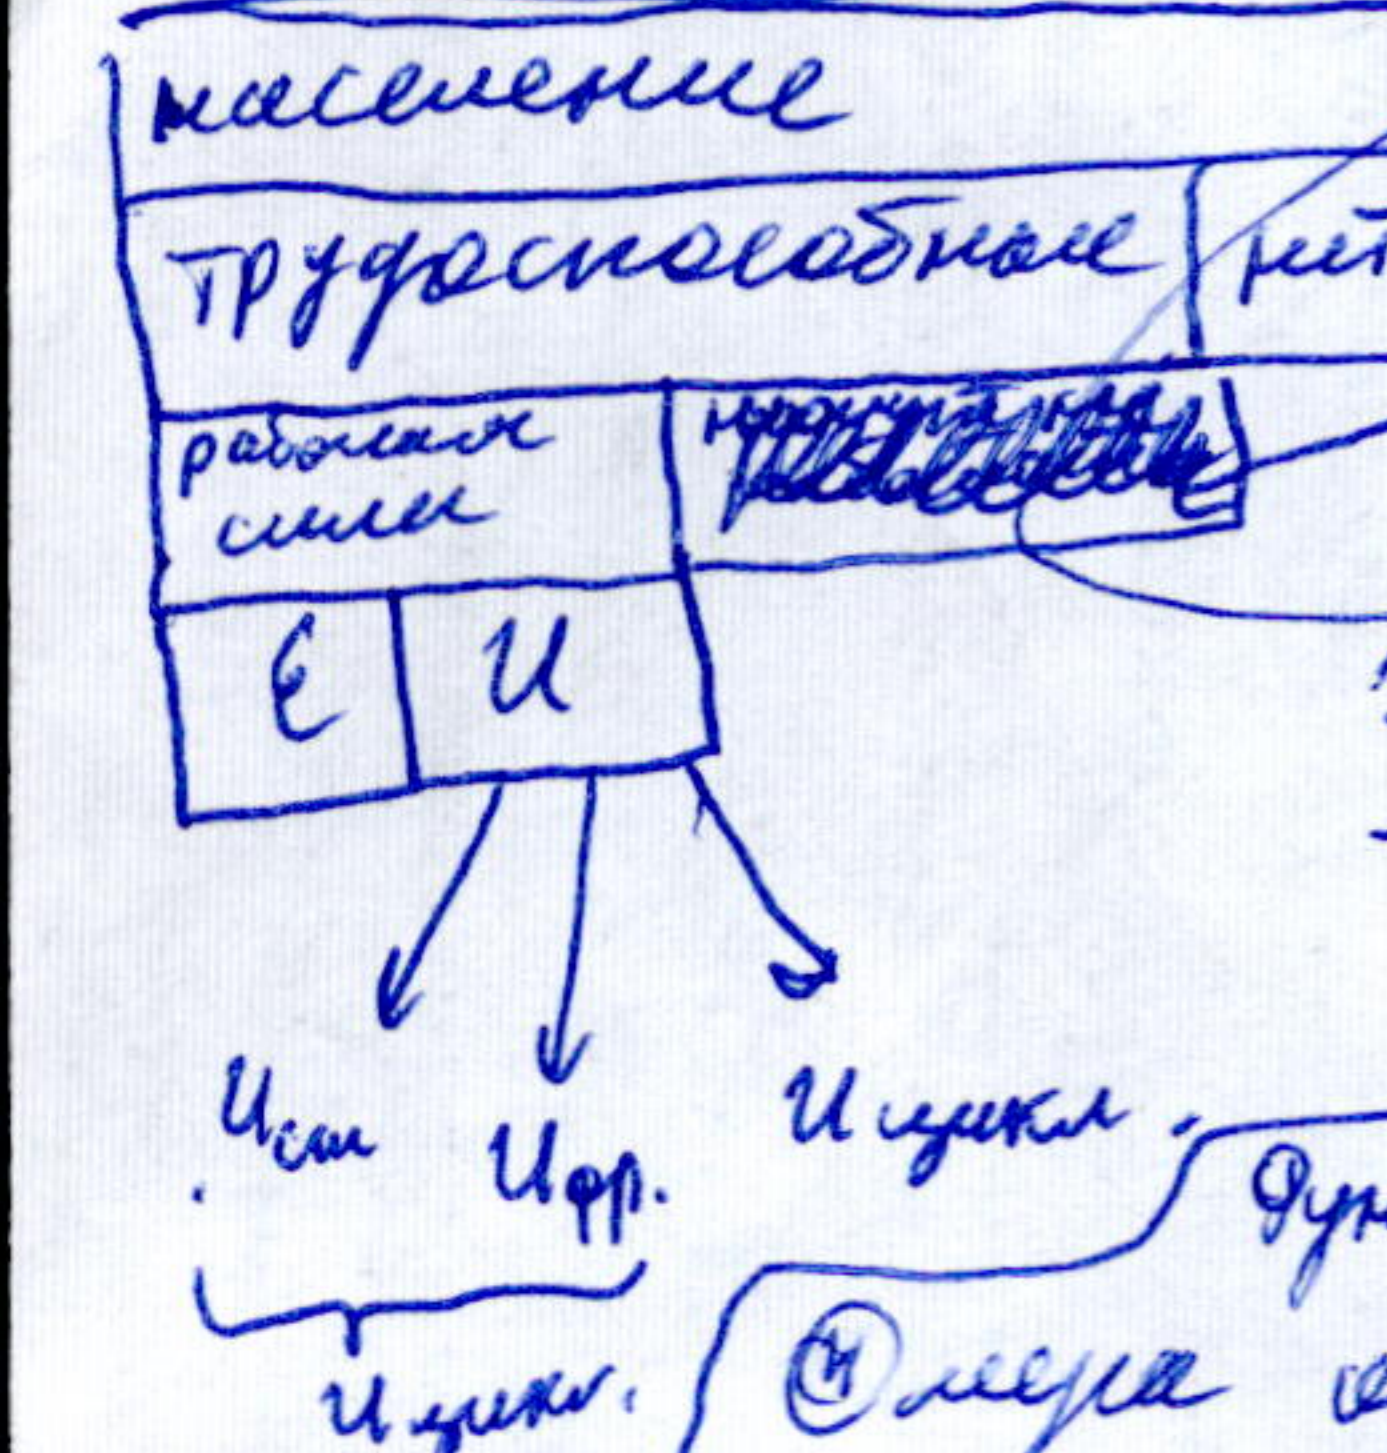 население
трудоспособные
рабочая
сила
E U
Uст Uфр. Uцикл.
Uцикл.
④ мера